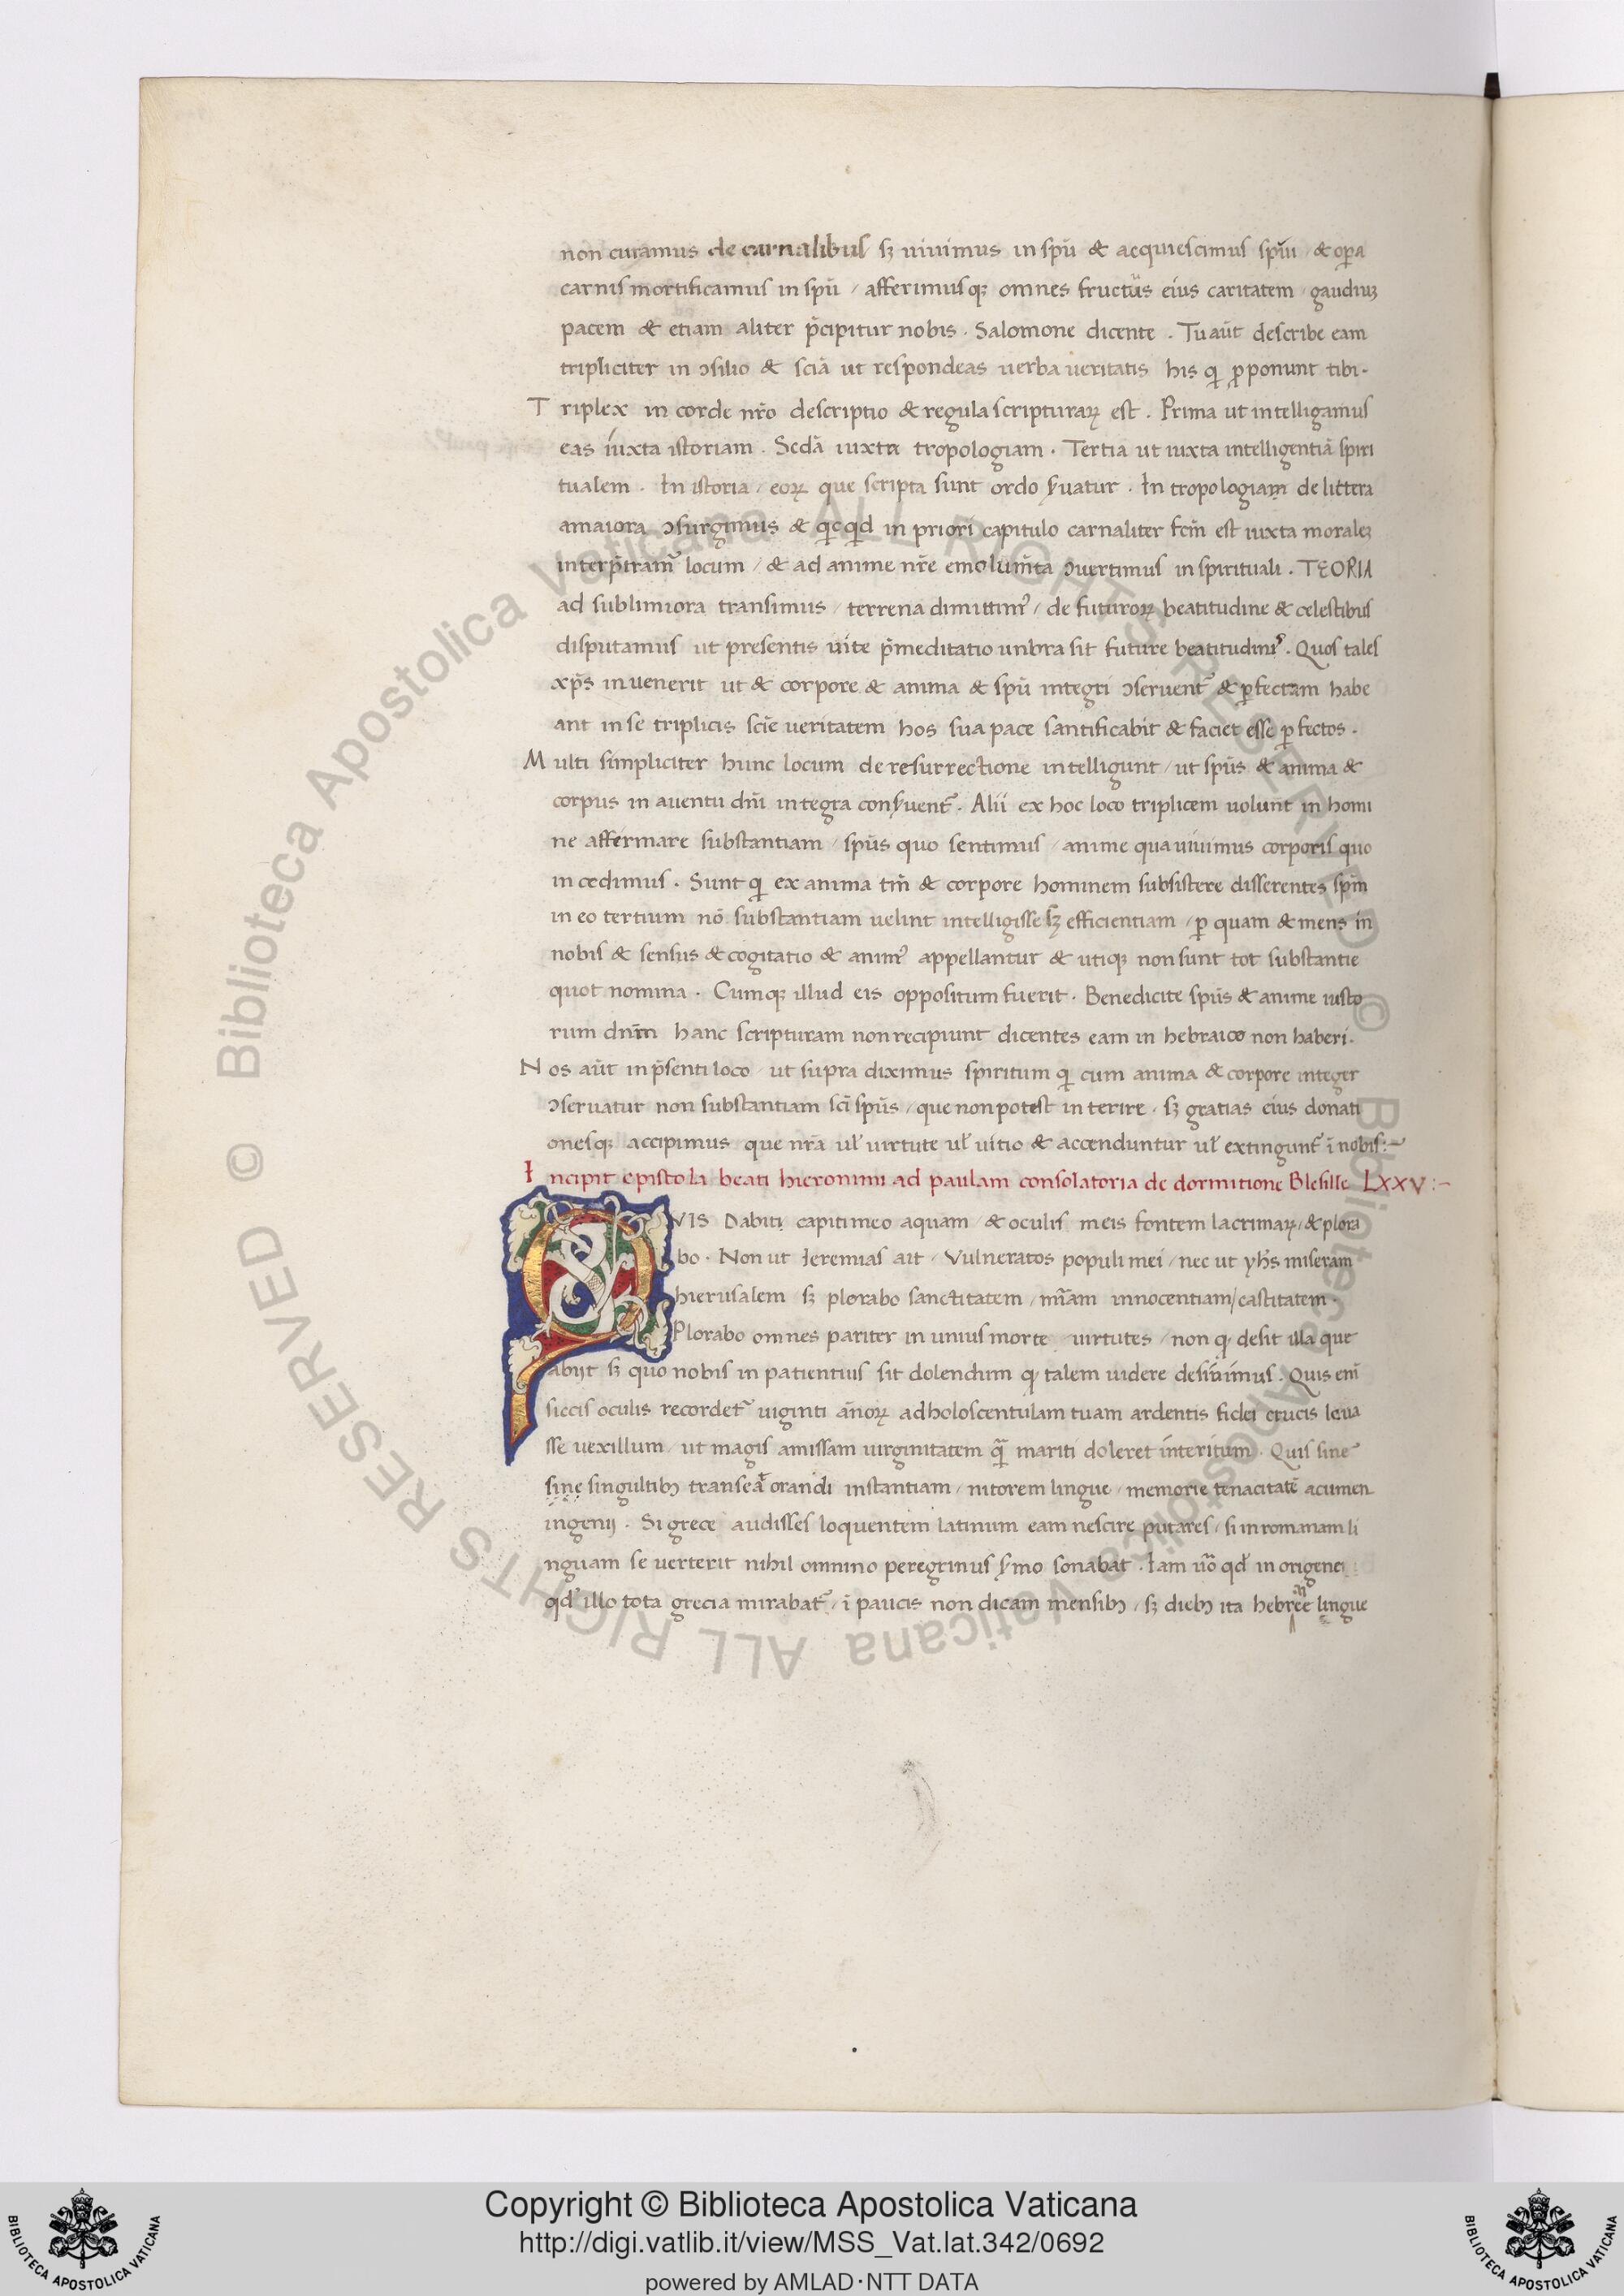 non curamus de carnalibus sꝫ uiuimus in spũ & acquiescimus spũi / & oꝑa
carnis mortificamus in spũ / afferimusqꝫ omnes fructus eius caritatem / gaudiuꝫ
pacem & etiam aliter p̃cipitur nobis . Salomone dicente . Tu aũt describe eam
tripliciter in ɔsilio & sciã ut respondeas uerba ueritatis his qi ꝓponunt tibi .
Triplex in corde nr̃o descriptio & regula scripturaꝝ est . Prima ut intelligamus
eas iuxta istoriam . Sedã iuxta tropologiam . Tertia ut iuxta intelligentiã spiri
tualem . In istoria / eoꝝ que scripta sunt ordo s̃uatur . In tropologiam de littera
amaiora ɔsurgimus & qicqid in priori capitulo carnaliter fcm̃ est iuxta moraleꝫ
interp̃tram̃ locum / & ad anime nr̃e emolum̃ta ɔuertimus in spirituali . TEORIA
ad sublimiora transimus / terrena dimittimꝰ / de futuroꝝ beatitudine & celestibus
disputamus ut presentis uite p̃meditatio unbra sit future beatitudinis . Quos tales
xp̃s inuenerit ut & corpore & anima & spũ integri ɔseruent᷑ & ꝑfectam habe
ant in se triplicis scĩe ueritatem hos sua pace santificabit & faciet esse ꝑfectos .
Multi simpliciter hunc locum de resurrectione intelligunt / ut spũs & anima &
corpus in auentu dñi integra cons̃uent᷑ . Alii ex hoc loco triplicem uolunt in homi
ne affermare substantiam / spũs quo sentimus / anime qua uiuimus corporis quo
incedimus . Sunt qi ex anima tm̃ & corpore hominem subsistere disserentes spm̃
in eo tertium nõ substantiam uelint intelligisse sꝫ efficientiam / ꝑ quam & mens in
nobis & sensus & cogitatio & animꝰ appellantur & utiqꝫ non sunt tot substantie
quot nomina . Cumqꝫ illud eis oppositum fuerit . Benedicite spũs & anime iusto
rum dnm̃ hanc scripturam non recipiunt dicentes eam in hebraico non haberi .
Nos aũt in p̃senti loco / ut supra diximus spiritum qi cum anima & corpore integer
ɔseruatur non substantiam scĩ spũs / que non potest interire . sꝫ gratias eius donati
onesqꝫ accipimus que nr̃a ul̃ uirtute ul̃ uitio & accenduntur ul̃ extingunt᷑ ĩ nobis :~
Incipit epistola beati hieronimi ad paulam consolatoria de dormitione Blesille LXXV :~
QVIS Dabiti capiti meo aquam & oculis meis fontem lacrimaꝝ / & plora
bo . Non ut Ieremias ait / Vulneratos populi mei / nec ut yhs̃ miseram
hierusalem sꝫ plorabo sanctitatem / mĩam innocentiam / castitatem .
Plorabo omnes pariter in unius morte uirtutes / non qꝫ desit illa que
abijt sꝫ quo nobis in patientius sit dolendum qꝫ talem uidere desinimus . Quis enĩ
siccis oculis recordet᷑ uiginti ãnoꝝ adholoscentulam tuam ardentis fidei crucis leua
sse uexillum / ut magis amissam uirginitatem q̃ mariti doleret interitum . Quis sine
sine singultibꝫ transeat orandi instantiam / nitorem lingue / memorie tenacitatẽ acumen
ingenij . Si grece audisses loquentem latinum eam nescire putares / si in romanam li
nguam se uerterit nihil omnino peregrinus s̃mo sonabat . Iam uõ qd̃ in origene
qd̃ illo tota grecia mirabat᷑ / ĩ paucis non dicam mensibꝫ / sꝫ diebꝫ ita hebree lingue
© Biblioteca Apostolica Vaticana ALL RIGHTS RESERVED © Biblioteca Apostolica Vaticana ALL RIGHTS RESERVED
Copyright © Biblioteca Apostolica Vaticana
http://digi.vatlib.it/view/MSS_Vat.lat.342/0692
powered by AMLAD·NTT DATA
BIBLIOTECA APOSTOLICA VATICANA
BIBLIOTECA APOSTOLICA VATICANA